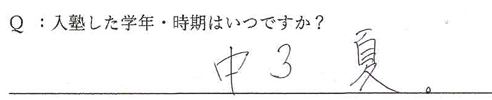 Q ：入塾した学年・時期はいつですか？
中3 夏。